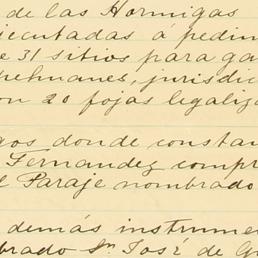 de las Hormigas
ejecutadas á pedim
e 31 sitios para ga
jurisdic
on 20 fojas legaliz
donde constan
Fernandez compr
l Paraje nombrado
demás instrume
brado Sn. José de G